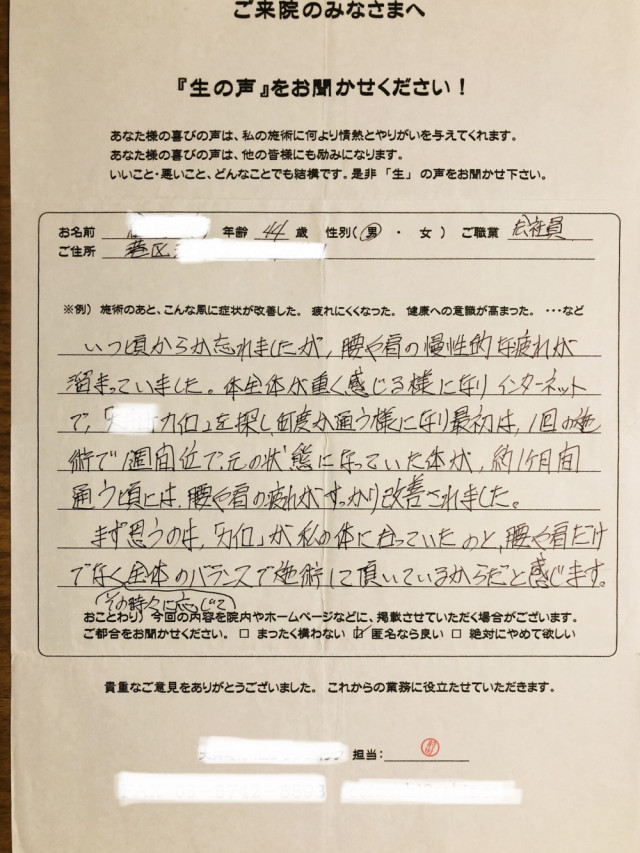 ご来院のみなさまへ
『生の声』をお聞かせください！
あなた様の喜びの声は、私の施術に何より情熱とやりがいを与えてくれます。
あなた様の喜びの声は、他の皆様にも励みになります。
いいこと・悪いこと、どんなことでも結構です。是非「生」の声をお聞かせ下さい。
お名前 年齢 44 歳 性別(男・女) ご職業 会社員
ご住所 港区
※例）施術のあと、こんな風に症状が改善した。疲れにくくなった。健康への意識が高まった。…など
いつ頃からか忘れましたが、腰や肩の慢性的な疲れが
溜まっていました。体全体が重く感じる様になりインターネット
で、「カイロ」を探し、何度か通う様になり最初は、1回の施
術で1週間位で元の状態になっていた体が、約1ヶ月間
通う頃には、腰や肩の疲れがすっかり改善されました。
まず思うのは、「カイロ」が私の体に合っていたのと、腰や肩だけ
でなく全体のバランスで施術して頂いているからだと感じます。
その時々に応じて
おことわり）今回の内容を院内やホームページなどに、掲載させていただく場合がございます。
ご都合をお聞かせください。□ まったく構わない ☑ 匿名なら良い □ 絶対にやめて欲しい
貴重なご意見をありがとうございました。これからの業務に役立たせていただきます。
担当：